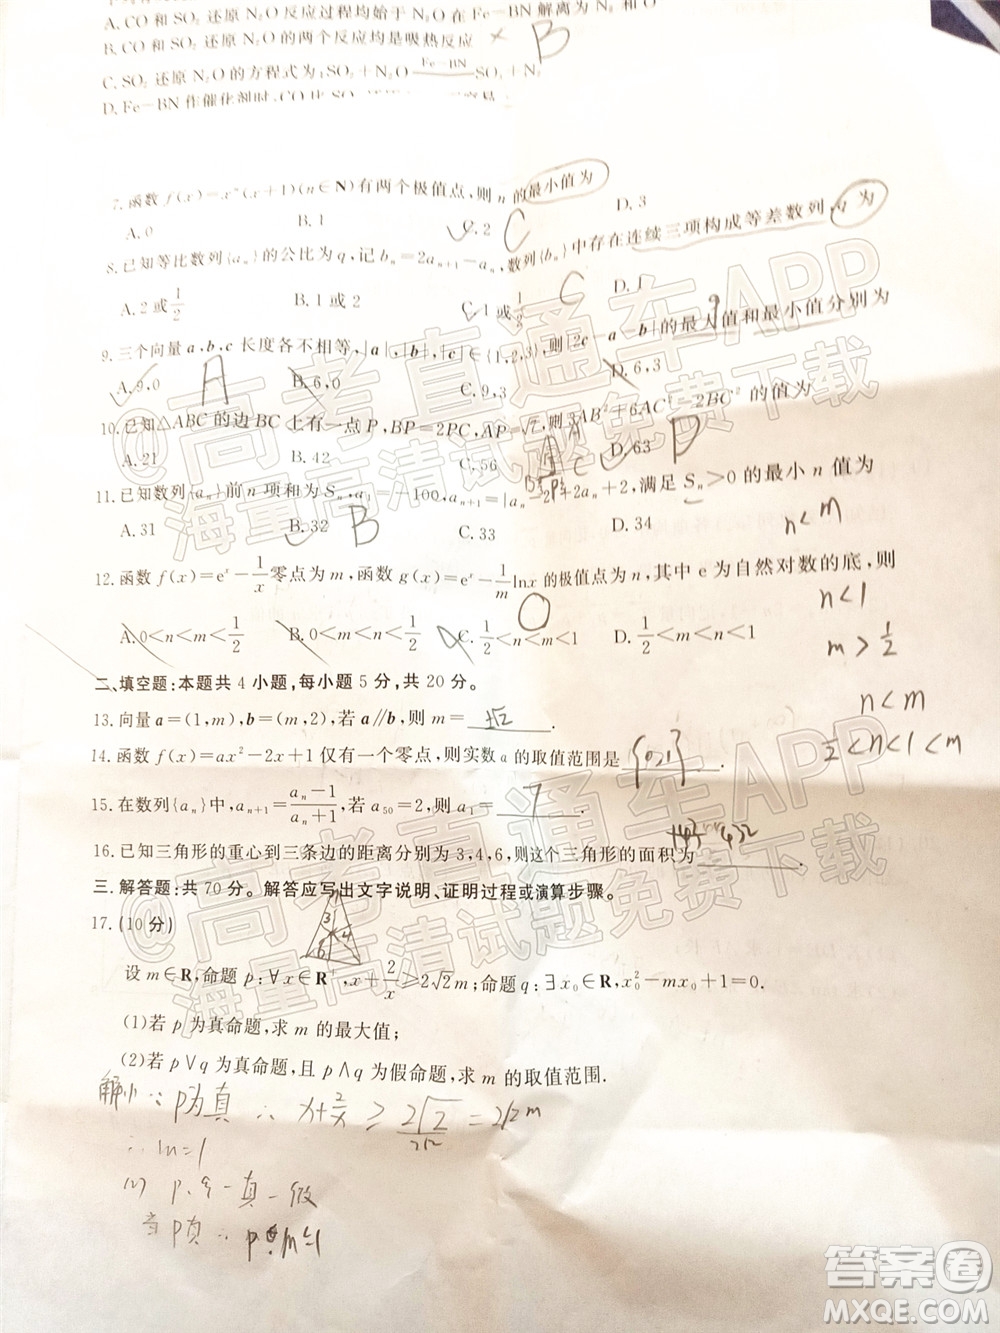 A. CO 和 SO₂ 还原 N₂O 反应过程均始于 N₂O 在 Fe-BN 解离为 N₂ 和 O
B. CO 和 SO₂ 还原 N₂O 的两个反应均是吸热反应 × B
C. SO₂ 还原 N₂O 的方程式为:SO₂+N₂O Fe-BN SO₃+N₂
D. Fe-BN 作催化剂时, CO 比 SO₂
7. 函数 f(x)=xⁿ(x+1)(n∈N)有两个极值点,则 n 的最小值为
A. 0 B. 1 C. 2 C D. 3
8. 已知等比数列{aₙ}的公比为 q,记 bₙ=2aₙ₊₁-aₙ,数列{bₙ}中存在连续三项构成等差数列,q 为
A. 2 或 1/2 B. 1 或 2 C. 1 或 1/2 C D. 1
9. 三个向量 a,b,c 长度各不相等,|a|,|b|,|c|∈{1,2,3},则|2c-a-b|的最大值和最小值分别为
A. 9,0 A B. 6,0 C. 9,3 D. 6,3
10. 已知△ABC 的边 BC 上有一点 P,BP=2PC,AP=√7,则 3AB²+6AC²-2BC² 的值为
A. 21 B. 42 C. 56 D. 63 D
11. 已知数列{aₙ}前 n 项和为 Sₙ,a₁=-100,aₙ₊₁=|aₙ-2|+2aₙ+2,满足 Sₙ>0 的最小 n 值为
A. 31 B. 32 B C. 33 D. 34
n<m
12. 函数 f(x)=eˣ-1/x 零点为 m,函数 g(x)=eˣ-1/m lnx 的极值点为 n,其中 e 为自然对数的底,则
n<1
A. 0<n<m<1/2 B. 0<m<n<1/2 C. 1/2<n<m<1 D. 1/2<m<n<1
m>1/2
二、填空题:本题共 4 小题,每小题 5 分,共 20 分。
n<m
13. 向量 a=(1,m),b=(m,2),若 a//b,则 m=±√2.
1/2<n<1<m
14. 函数 f(x)=ax²-2x+1 仅有一个零点,则实数 a 的取值范围是{0,1}.
15. 在数列{aₙ}中,aₙ₊₁=(aₙ-1)/(aₙ+1),若 a₅₀=2,则 a₁=7.
16. 已知三角形的重心到三条边的距离分别为 3,4,6,则这个三角形的面积为 432.
三、解答题:共 70 分。解答应写出文字说明、证明过程或演算步骤。
17. (10 分)
3 4 6
设 m∈R,命题 p:∀x∈R⁺,x+2/x≥2√2m,命题 q:∃x₀∈R,x₀²-mx₀+1=0.
(1)若 p 为真命题,求 m 的最大值;
(2)若 p∨q 为真命题,且 p∧q 为假命题,求 m 的取值范围.
解(1) ∵ p为真 ∴ x+2/x ≥ 2√2/2√2 = 2√2m
∴ m=1
(2) p、q一真一假
当p真 ∴ p:m≤1
@高考直通车APP
海量高清试题免费下载
@高考直通车APP
海量高清试题免费下载
答案圈
MXQE.COM